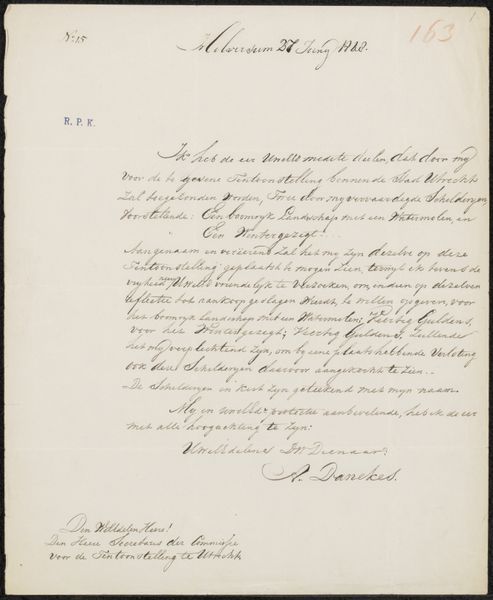 No 15
Hilversum 27 Juny 1848.
163
1
R. P. K.
Ik heb de eer UwelEd mede te deelen, dat door my
voor de te gevene Tentoonstelling binnen de Stad Utrecht
zal toegezonden worden, Twee door my vervaardigde Schilderyen
Voorstellende: Een boomryk Landschap met een Watermolen, en
Een Wintergezigt.
Aangenaam en vereerend zal het my zyn dezelve op deze
Tentoonstelling geplaatst te mogen zien, terwyl ik tevens de
vryheid neem UwelEd vriendelyk te verzoeken, om indien op dezelven
reflectie tot aankoop geslagen wierdt, te willen opgeven, voor
het boomryk Landschap met een Watermolen; Guldens,
voor het Wintergezigt; Veertig Guldens, zullende
het my verplichtend zyn, om by eene plaats hebbende Verloting
ook deze Schilderyen daarvoor aangekocht te zien.
De Schilderyen in kist zyn geteekend met myn naam.
My in protectie aanbevelende, heb ik de eer
met alle hoogachting te zyn:
UwelEdelens Dw Dienaar
A. Danekes.
Den WelEdelen Heere!
Den Heere Secretaris der Commissie
voor de Tentoonstelling te Utrecht